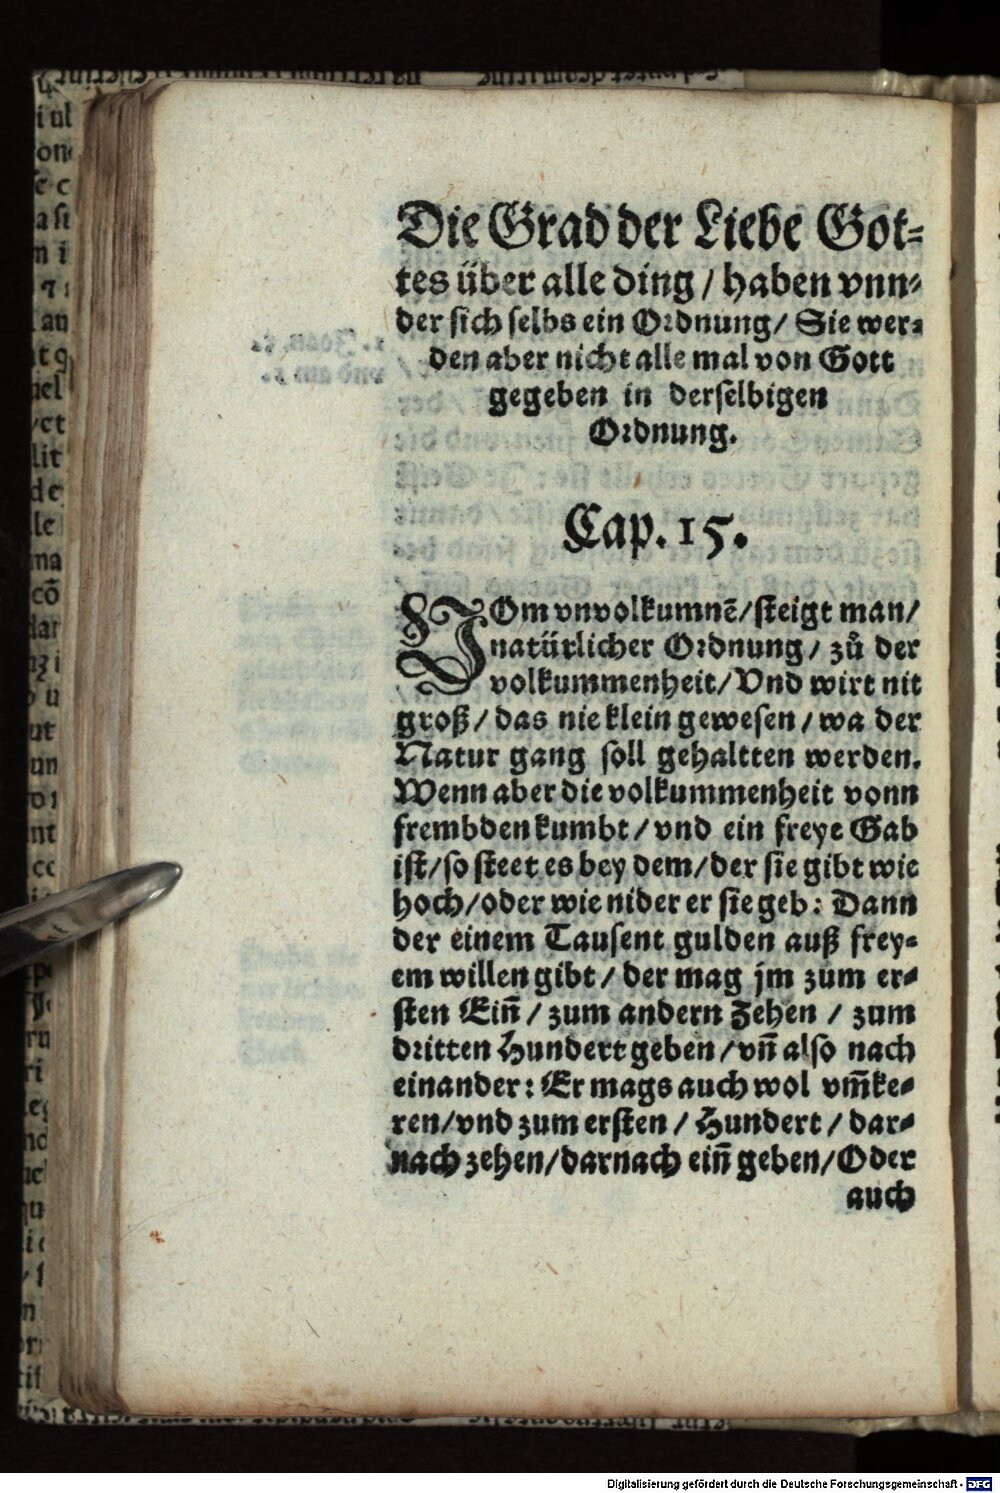 Die Grad der Liebe Got-
tes über alle ding / haben vnn-
der sich selbs ein Ordnung / Sie wer-
den aber nicht alle mal von Gott
gegeben in derselbigen
Ordnung.
Cap. 15.
VOm vnvolkumnē / steigt man /
natürlicher Ordnung / zů der
volkummenheit / Vnd wirt nit
groß / das nie klein gewesen / wa der
Natur gang soll gehaltten werden.
Wenn aber die volkummenheit vonn
frembden kumbt / vnd ein freye Gab
ist / so steet es bey dem / der sie gibt wie
hoch / oder wie nider er sie geb : Dann
der einem Tausent gulden auß frey-
em willen gibt / der mag jm zum er-
sten Eiñ / zum andern Zehen / zum
dritten Hundert geben / vñ also nach
einander : Er mags auch wol vm̃ke-
ren / vnd zum ersten / Hundert / dar-
nach zehen / darnach eiñ geben / Oder
auch
Digitalisierung gefördert durch die Deutsche Forschungsgemeinschaft - DFG